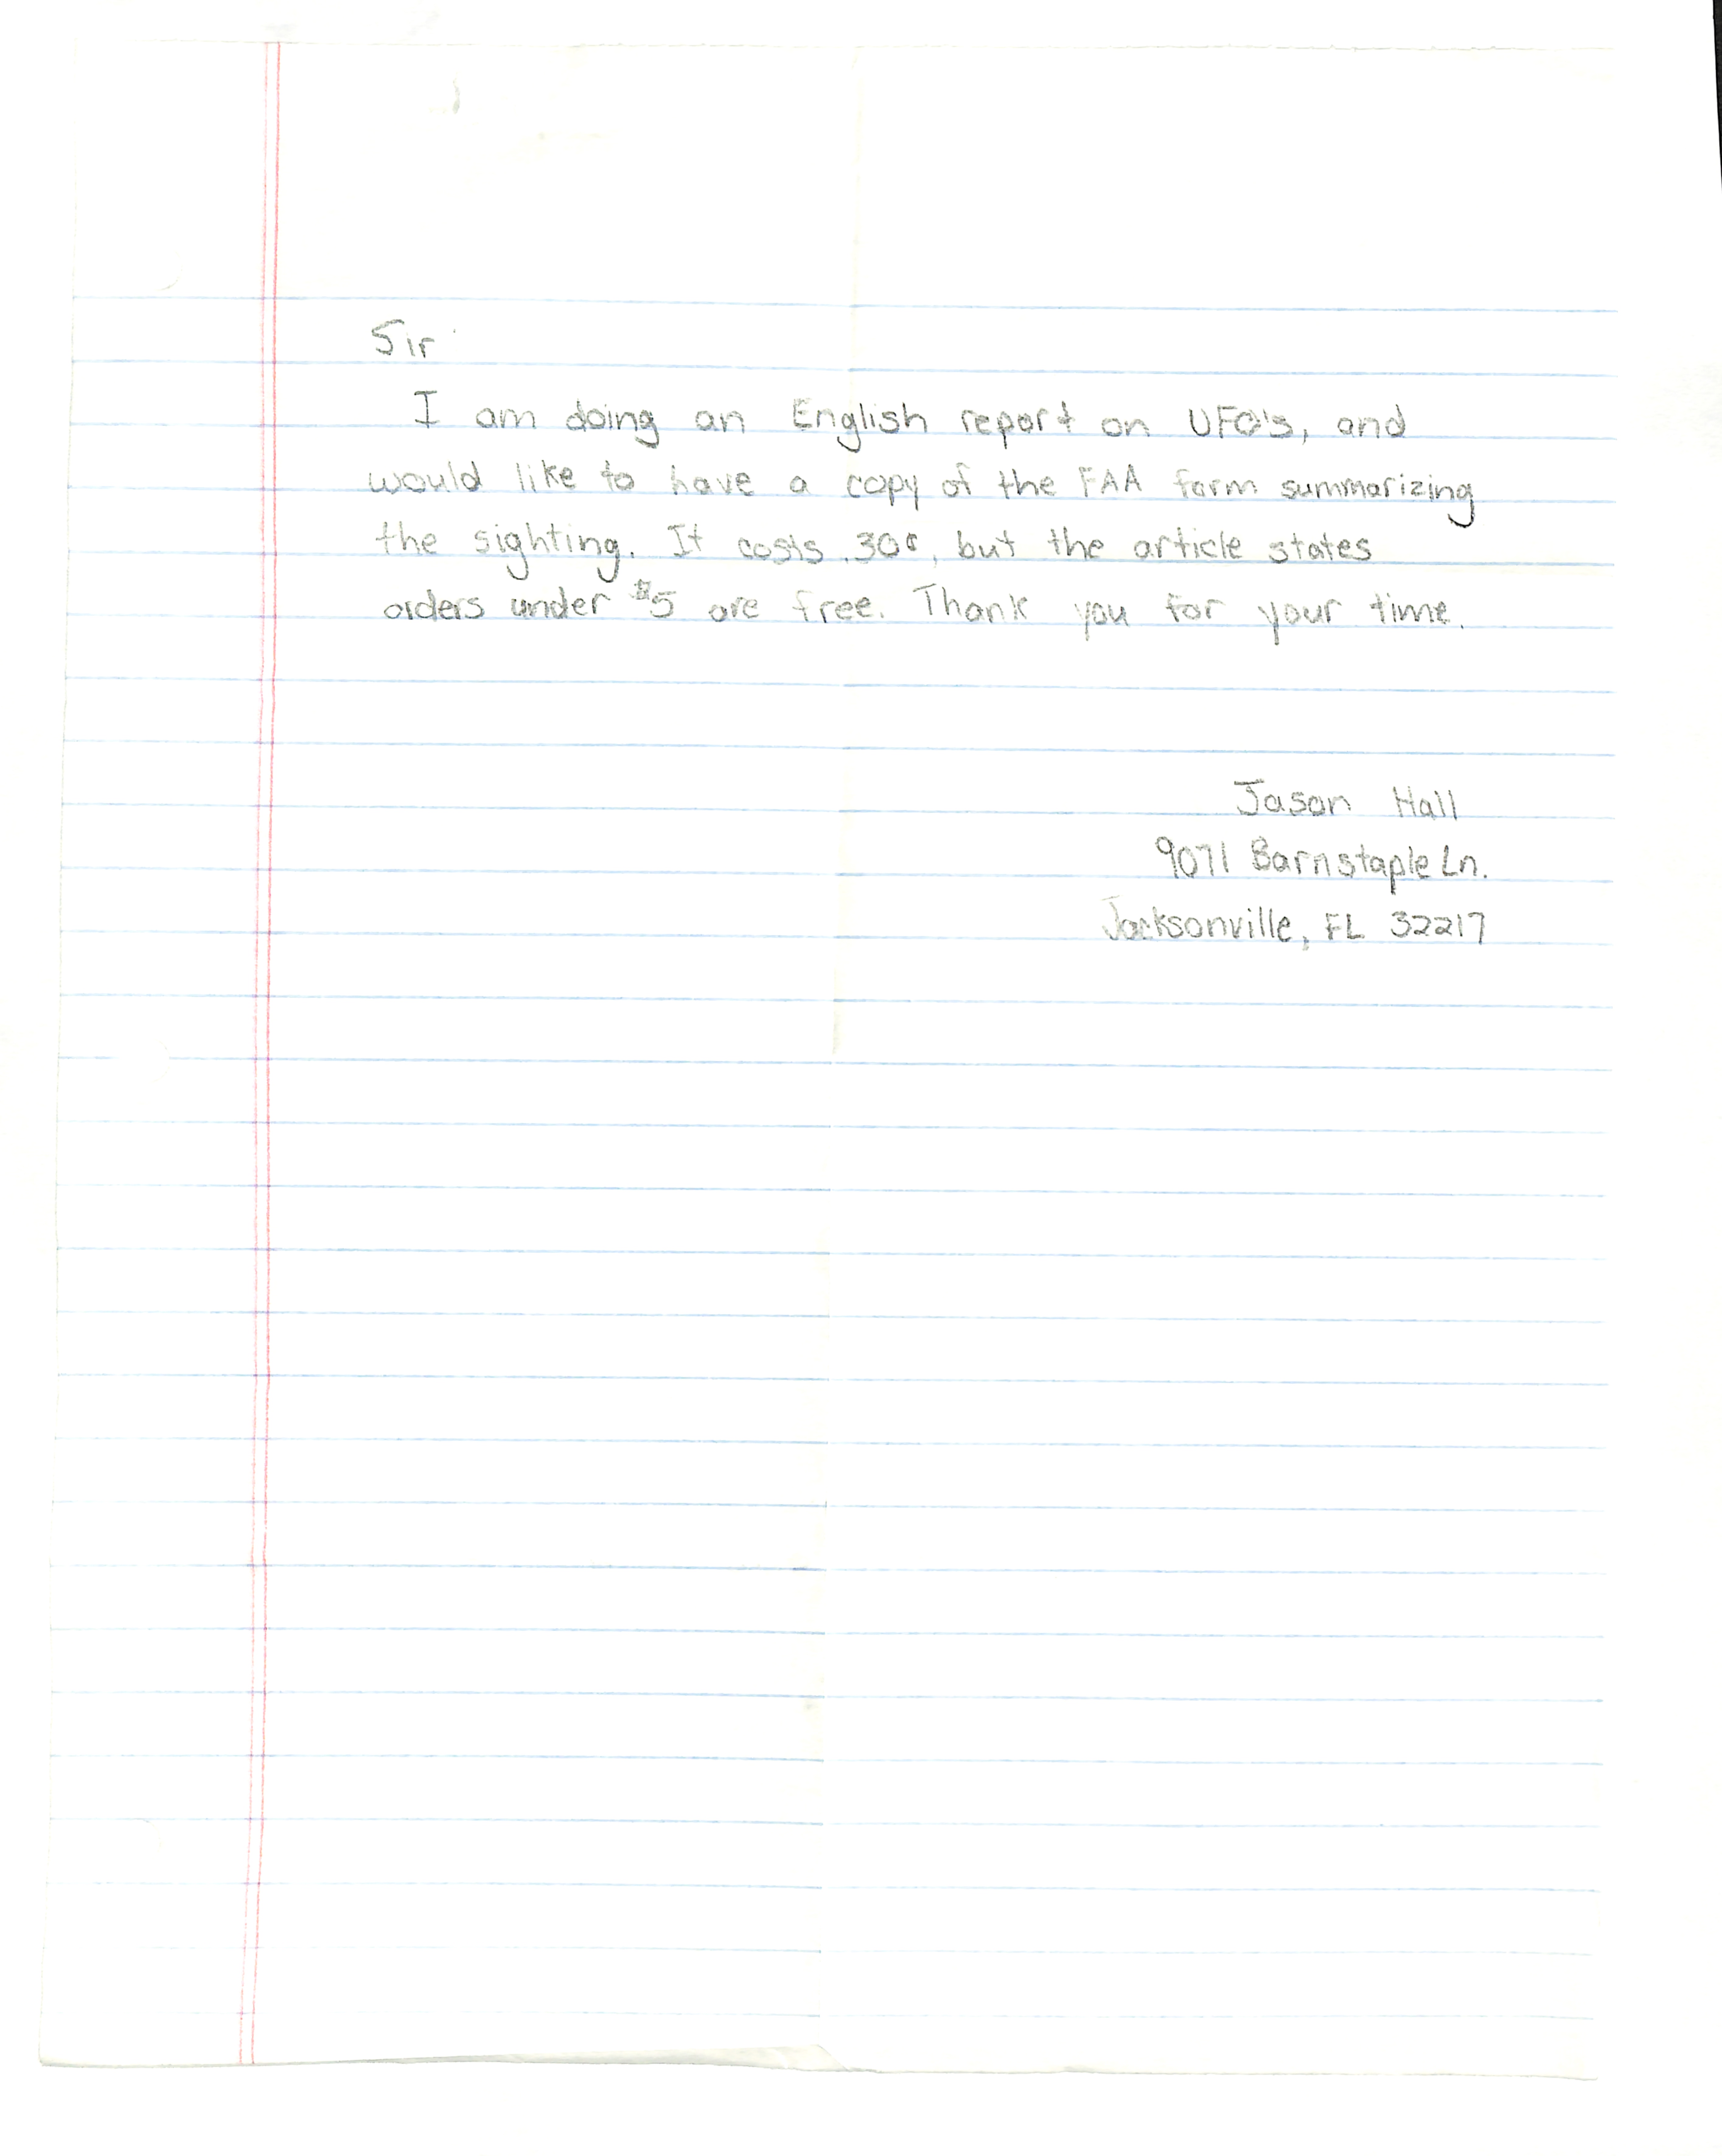 Sir
I am doing an English report on UFO's, and
would like to have a copy of the FAA form summarizing
the sighting. It costs .30¢, but the article states
orders under $5 are free. Thank you for your time.
Jason Hall
9071 Barnstaple Ln.
Jacksonville, FL 32217